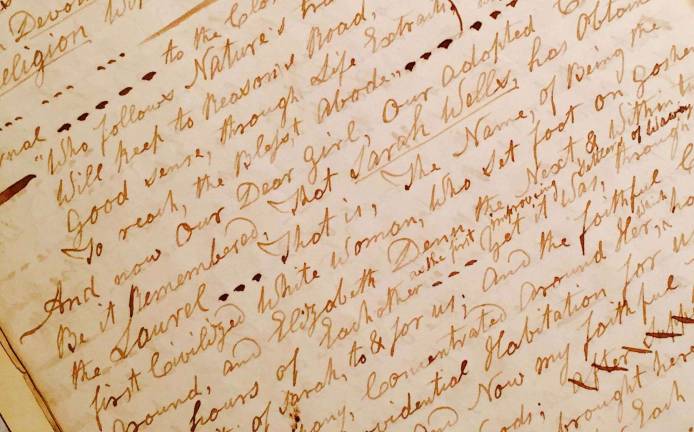 Devo
Religion
to the Clo
Who follows Nature's
"Will keep to Reason's Road,
Good sense, through Life Extracts)
To reach, the Blest Abode"
And now Our Dear Girl, Our adopted
Be it Remembered, that Sarah Wells, has Obtain
the Laurel That is, The Name, of Being the
first Civilized White Woman, Who set foot on Goshe
Ground, and Elizabeth Denn the Next & Within t
hours of Each other as the first improving Settlers of Waway
Yet it was, through
of Sarah, to & for us; and the faithful
any, Concentrated around Her, which ho
Providential Habitation for us
And Now my faithful
ods; After supp
brought here
Each